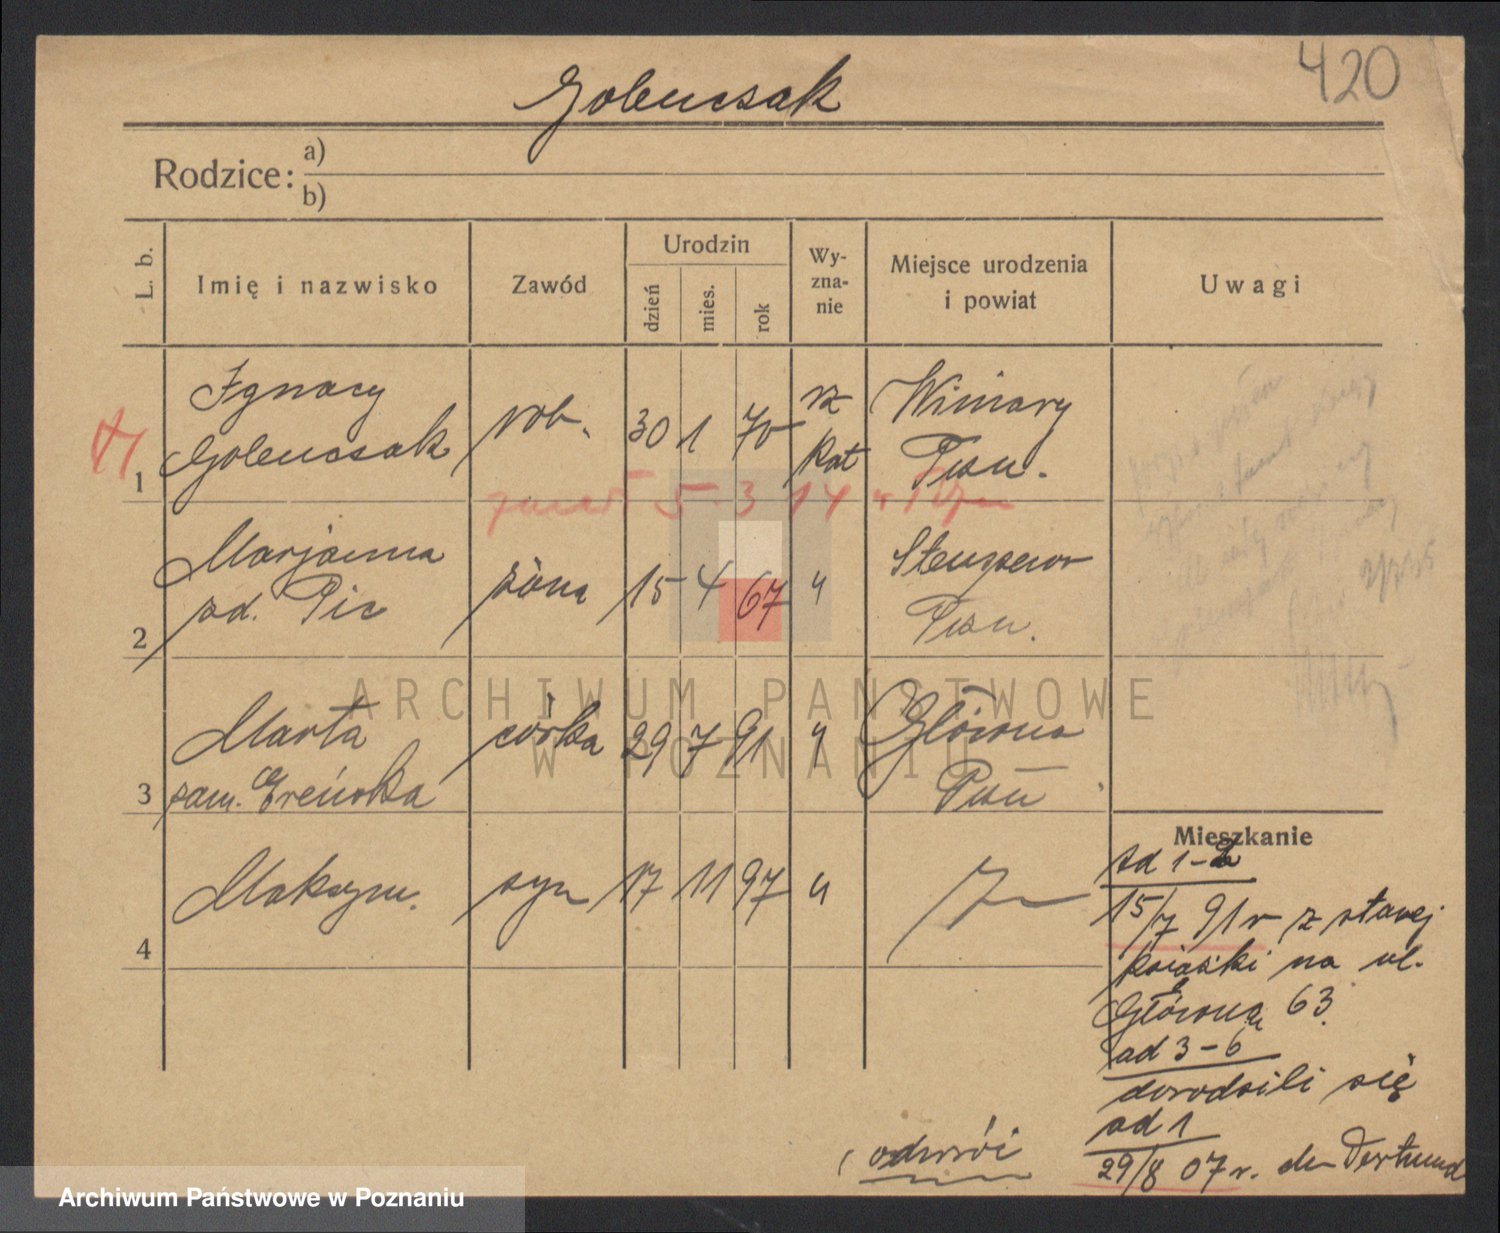 420
Golenczak
Rodzice: a)
b)
L. b.
Imię i nazwisko
Zawód
Urodzin
dzień
mies.
rok
Wy-
zna-
nie
Miejsce urodzenia
i powiat
Uwagi
1
Ignacy
Golenczak
rob.
30 1 70
rz
kat
Winiary
Pozn.
zmarł 5 3 14
2
Marjanna
zd. Pic
żona
15 4 67
"
Stenszewo
Pozn.
3
Marta
zam. Ereńska
córka
29 7 91
"
Główna
Pozn
4
Maksym.
syn
17 11 97
"
Mieszkanie
ad 1-2
15/7 91 r z starej
książki na ul.
Główna 63.
ad 3-6
dorodzili się
ad 1
29/8 07 r. do Dortmund
odwróć
ARCHIWUM PAŃSTWOWE
W POZNANIU
Archiwum Państwowe w Poznaniu